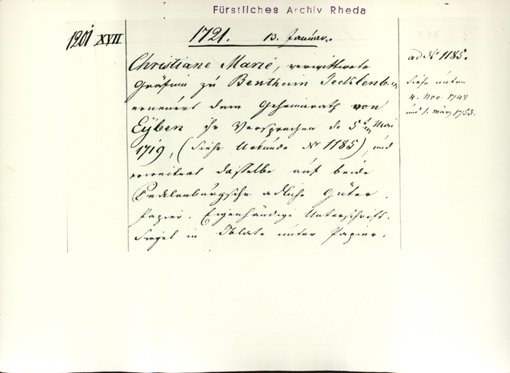 Fürstliches Archiv Rheda
1201 XVII
1721. 13. Januar.
Christiane Marie, verwittwete
Gräfinn zu Bentheim Tecklenburg
erneuert dem Geheimrath von
Eyben ihr Versprechen de 5ten Mai
1719, (siehe Urkunde No 1185), und
erweitert dasselbe auf beide
Tecklenburgsche adliche Güter.
Papier. Eigenhändige Unterschrift.
Siegel in Oblate unter Papier.
ad No 1185.
Siehe unten
4. Nov. 1748
und 1. März 1753.